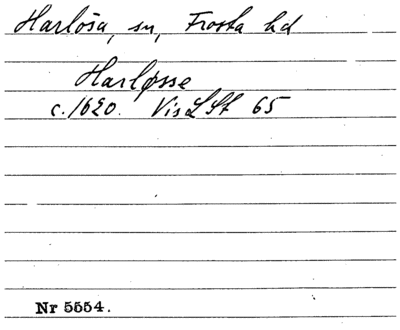 Harlösa, sn, Frosta hd
Harløsse
c. 1620. VisLSt 65
Nr 5554.